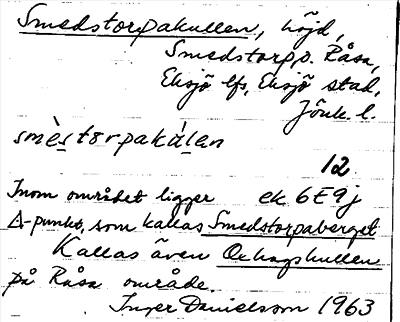 Smedstorpakullen, höjd,
Smedstorp, o. Råsa,
Eksjö lfs, Eksjö stad,
Jönk. l.
smèstorpakúlen
12
Inom området ligger ek 6E9j
Δ-punkt, som kallas Smedstorpaberget
Kallas även Oxhagskullen
på Råsa område.
Inger Danielsson 1963